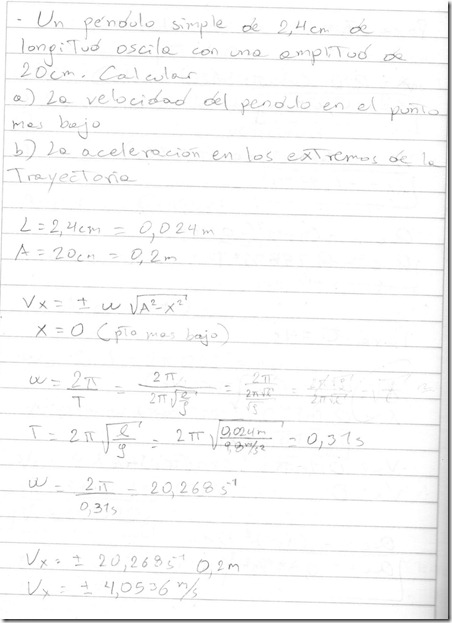 - Un péndulo simple de 2,4cm de
longitud oscila con una amplitud de
20cm. Calcular
a) La velocidad del pendulo en el punto
mas bajo
b) La aceleración en los extremos de la
Trayectoria
L = 2,4cm = 0,024m
A = 20cm = 0,2m
Vx = ± ω √A²-x²
x = 0 (pto mas bajo)
ω = 2π/T = 2π/2π√(l/g) = 2π/(2π√l/√g) =
T = 2π√(l/g) = 2π√(0,024m/9,8m/s²) = 0,31s
ω = 2π/0,31s = 20,268 s⁻¹
Vx = ± 20,268 s⁻¹ 0,2m
Vx = ± 4,0536 m/s